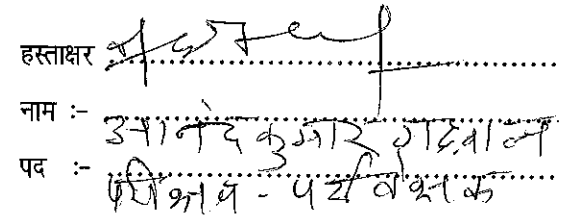 हस्ताक्षर
नाम :- आनंद कुमार गढ़वाल
पद :- - पर्यवेक्षक